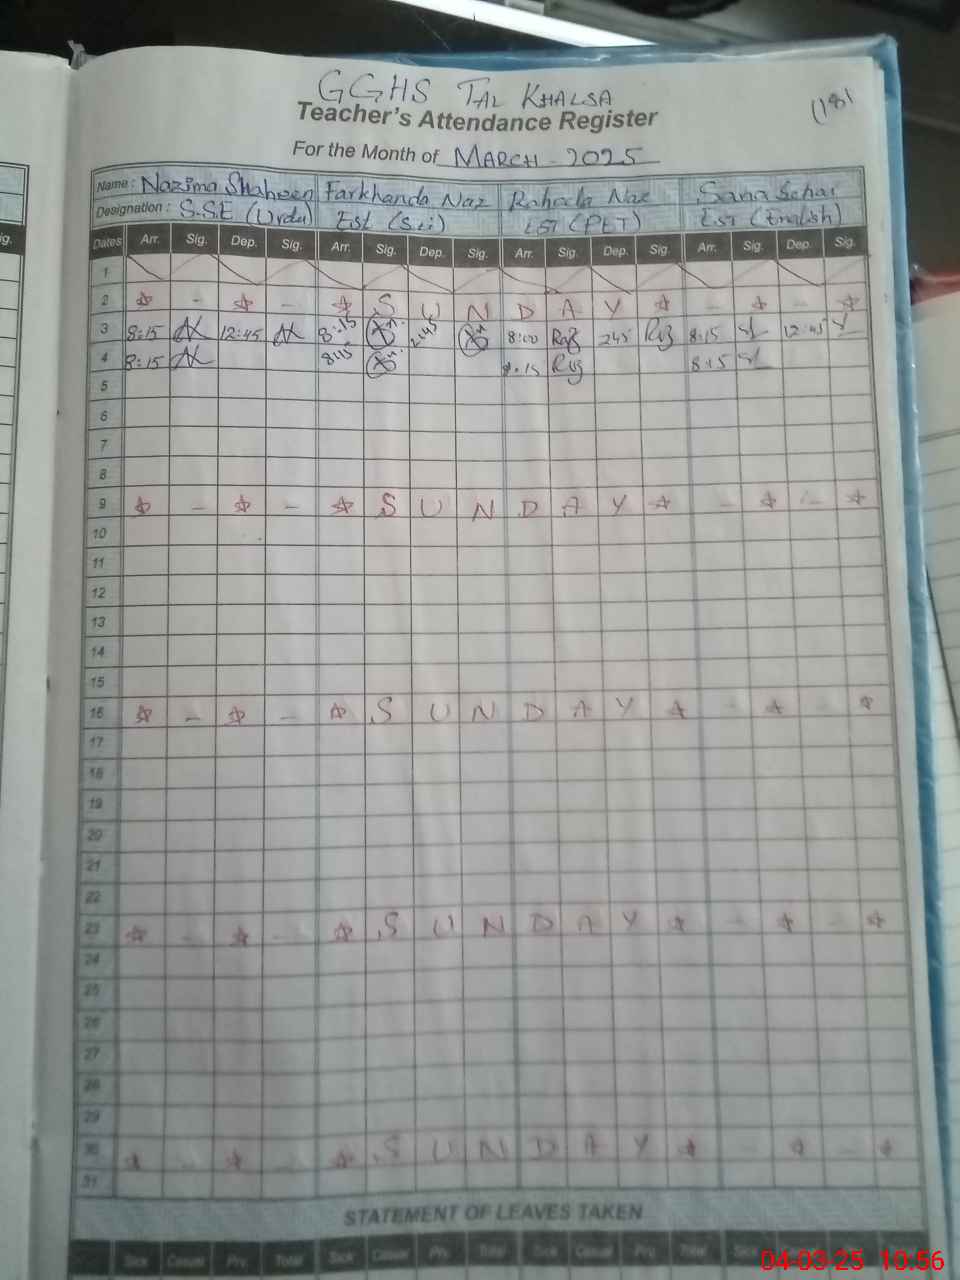 GGHS TAL KHALSA
(181
Teacher's Attendance Register
For the Month of MARCH - 2025
Name: Nazima Shaheen Farkhanda Naz Rahada Naz Sana Sehar
Designation: S.S.E (Urdu) Est (Sci) EST (PET) EST (English)
ig.
Dates Arr. Sig. Dep. Sig. Arr. Sig. Dep. Sig. Arr. Sig. Dep. Sig. Arr. Sig. Dep. Sig.
1
2 - - S U N D A Y - -
3 8:15 12:45 8:15 2:45 8:00 245 8:15 12:45
4 8:15 8:15 8:15
5
6
7
8
9 - - S U N D A Y - -
10
11
12
13
14
15
16 - - S U N D A Y - -
17
18
19
20
21
22
23 - - S U N D A Y - -
24
25
26
27
28
29
30 - - S U N D A Y - -
31
STATEMENT OF LEAVES TAKEN
Sick Casual Prv. Total Sick Casual Prv. Total Sick Casual Prv. Total Sick
04-03-25 10:56